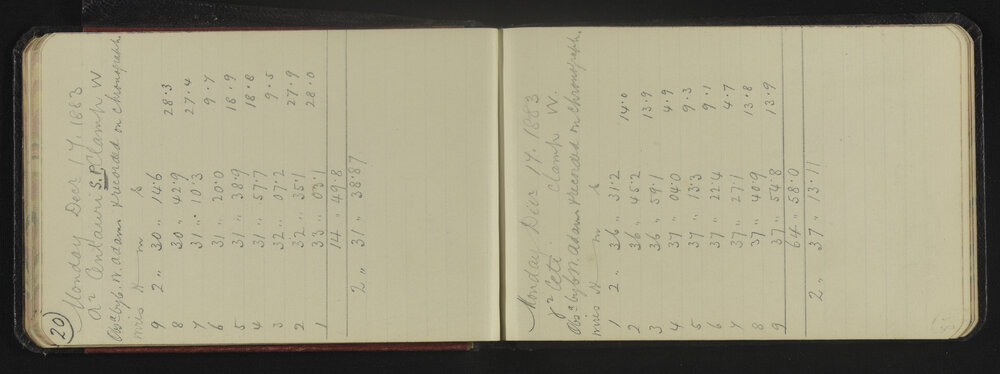 20
Monday Decr 17. 1883
α² Centauri S.P. Clamp W
Obsd by C. W. Adams & recorded on chronograph.
wires h m s
9 2 " 30 " 14.6
8 30 " 42.9 28.3
7 31 " 10.3 27.4
6 31 " 20.0 9.7
5 31 " 38.9 18.9
4 31 " 57.7 18.8
3 32 " 07.2 9.5
2 32 " 35.1 27.9
1 33 " 03.1 28.0
14 " 49.8
2 " 31 " 38.87
Monday Decr 17. 1883
γ² Ceti Clamp W.
Obsd by C W. Adams & recorded on chronograph.
wires h m s
1 2 " 36 " 31.2
2 36 " 45.2 14.0
3 36 " 59.1 13.9
4 37 " 04.0 4.9
5 37 " 13.3 9.3
6 37 " 22.4 9.1
7 37 " 27.1 4.7
8 37 " 40.9 13.8
9 37 " 54.8 13.9
64 " 58.0
2 " 37 " 13.11